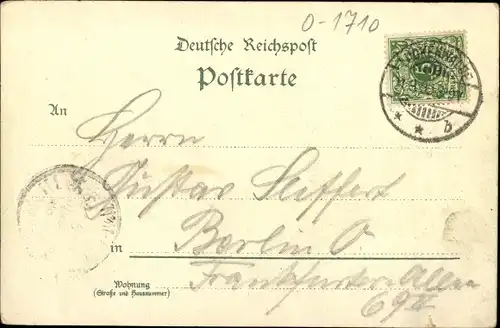 0-1710
Deutsche Reichspost
Postkarte
An
Herrn
Gustav Seiffert
in Berlin O
Wohnung
(Straße und Hausnummer)
Frankfurter Allee
69 II
* * b